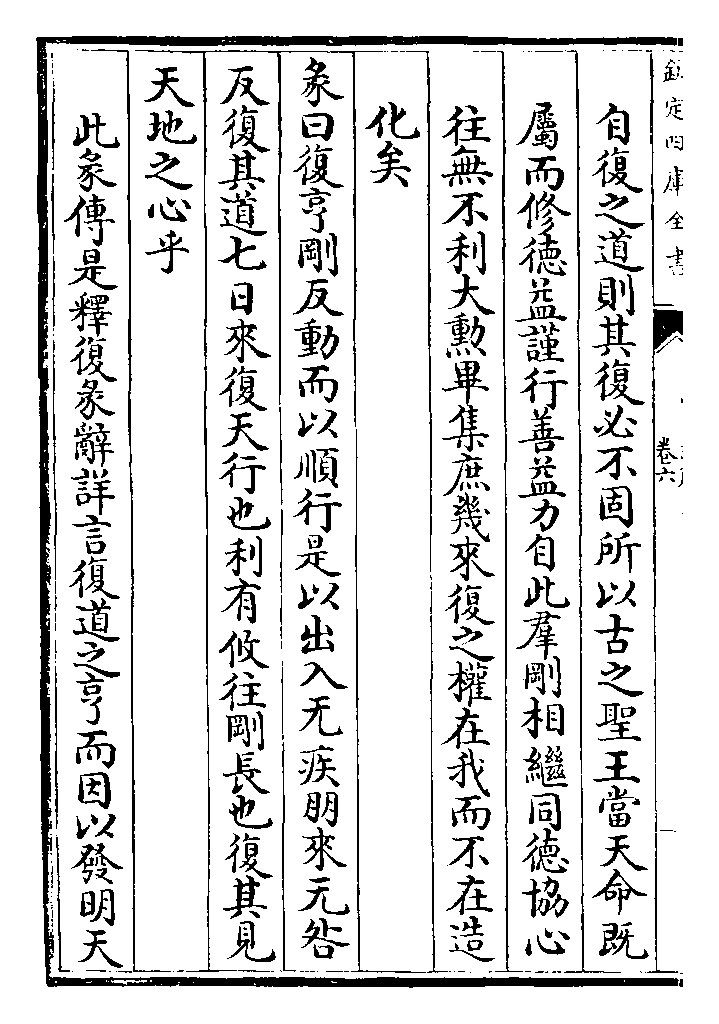 欽定四庫全書
卷六
自復之道則其復必不固所以古之聖王當天命既
屬而修德益謹行善益力自此羣剛相繼同德協心
往無不利大勲畢集庶幾來復之權在我而不在造
化矣
彖曰復亨剛反動而以順行是以出入无疾朋來无咎
反復其道七日來復天行也利有攸往剛長也復其見
天地之心乎
此彖傳是釋復彖辭詳言復道之亨而因以發明天